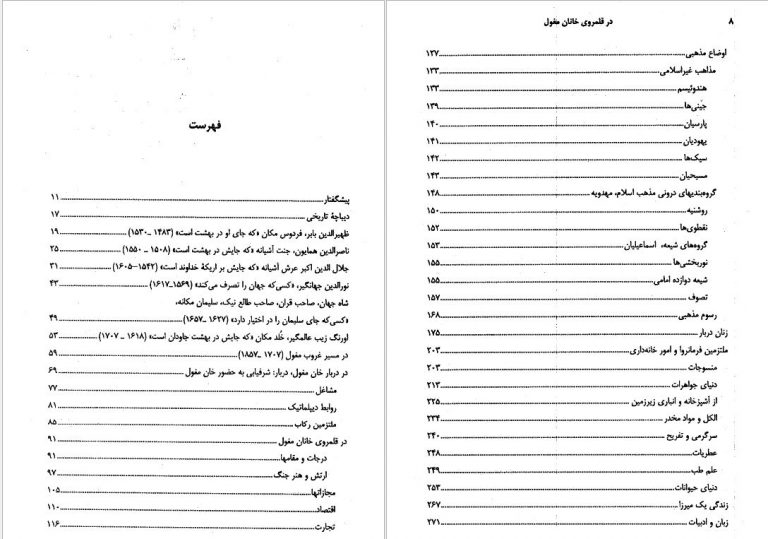 فهرست
پیشگفتار ۱۱
دیباچهٔ تاریخی ۱۷
ظهیرالدین بابر، فردوس مکان «که جای او در بهشت است» (۱۴۸۳ ـ ۱۵۳۰) ۱۹
ناصرالدین همایون، جنت آشیانه «که جایش در بهشت است» (۱۵۰۸ ـ ۱۵۵۰) ۲۵
جلال الدین اکبر عرش آشیانه «که جایش بر اریکهٔ خداوند است» (۱۵۴۲–۱۶۰۵) ۳۱
نورالدین جهانگیر، «کسی‌که جهان را تصرف می‌کند» (۱۵۶۹ـ۱۶۱۷) ۴۳
شاه جهان، صاحب قران، صاحب طالع نیک، سلیمان مکانه،
«کسی‌که جای سلیمان را در اختیار دارد» (۱۶۲۷ ـ ۱۶۵۷) ۴۹
اورنگ زیب عالمگیر، خُلد مکان «که جایش در بهشت جاودان است» (۱۶۱۸ ـ ۱۷۰۷) ۵۳
در مسیر غروب مغول (۱۷۰۷ ـ۱۸۵۷) ۵۹
در دربار خان مغول، دربار: شرفیابی به حضور خان مغول ۶۹
مشاغل ۷۷
روابط دیپلماتیک ۸۱
ملتزمین رکاب ۸۵
در قلمروی خانان مغول ۹۱
درجات و مقامها ۹۱
ارتش و هنر جنگ ۹۷
مجازاتها ۱۰۵
اقتصاد ۱۱۰
تجارت ۱۱۶
۸ در قلمروی خانان مغول
اوضاع مذهبی ۱۲۷
مذاهب غیراسلامی ۱۳۳
هندوئیسم ۱۳۳
جینی‌ها ۱۳۹
پارسیان ۱۴۰
یهودیان ۱۴۱
سیک‌ها ۱۴۲
مسیحیان ۱۴۳
گروه‌بندیهای درونی مذهب اسلام، مهدویه ۱۴۸
روشنیه ۱۵۰
نقطوی‌ها ۱۵۲
گروه‌های شیعه، اسماعیلیان ۱۵۳
نوربخشی‌ها ۱۵۵
شیعه دوازده امامی ۱۵۵
تصوف ۱۵۷
رسوم مذهبی ۱۶۸
زنان دربار ۱۷۵
ملتزمین فرمانروا و امور خانه‌داری ۲۰۳
منسوجات ۲۰۳
دنیای جواهرات ۲۱۳
از آشپزخانه و انباری زیرزمین ۲۲۵
الکل و مواد مخدر ۲۳۴
سرگرمی و تفریح ۲۴۰
عطریات ۲۴۸
علم طب ۲۴۹
دنیای حیوانات ۲۵۳
زندگی یک میرزا ۲۶۷
زبان و ادبیات ۲۷۱